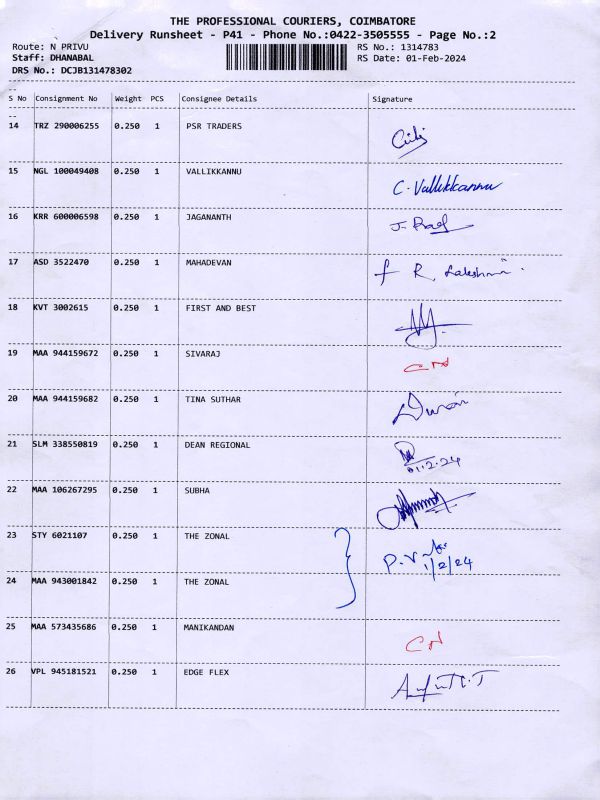 THE PROFESSIONAL COURIERS, COIMBATORE
Delivery Runsheet - P41 - Phone No.:0422-3505555 - Page No.:2
Route: N PRIVU RS No.: 1314783
Staff: DHANABAL RS Date: 01-Feb-2024
DRS No.: DCJB131478302
S No Consignment No Weight PCS Consignee Details Signature
14 TRZ 290006255 0.250 1 PSR TRADERS
15 NGL 100049408 0.250 1 VALLIKKANNU C. Vallikkannu
16 KRR 600006598 0.250 1 JAGANANTH
17 ASD 3522470 0.250 1 MAHADEVAN f R. Lakshmi
18 KVT 3002615 0.250 1 FIRST AND BEST
19 MAA 944159672 0.250 1 SIVARAJ CN
20 MAA 944159682 0.250 1 TINA SUTHAR
21 SLM 338550819 0.250 1 DEAN REGIONAL 01.2.24
22 MAA 106267295 0.250 1 SUBHA
23 STY 6021107 0.250 1 THE ZONAL 1/2/24
24 MAA 943001842 0.250 1 THE ZONAL
25 MAA 573435686 0.250 1 MANIKANDAN CN
26 VPL 945181521 0.250 1 EDGE FLEX